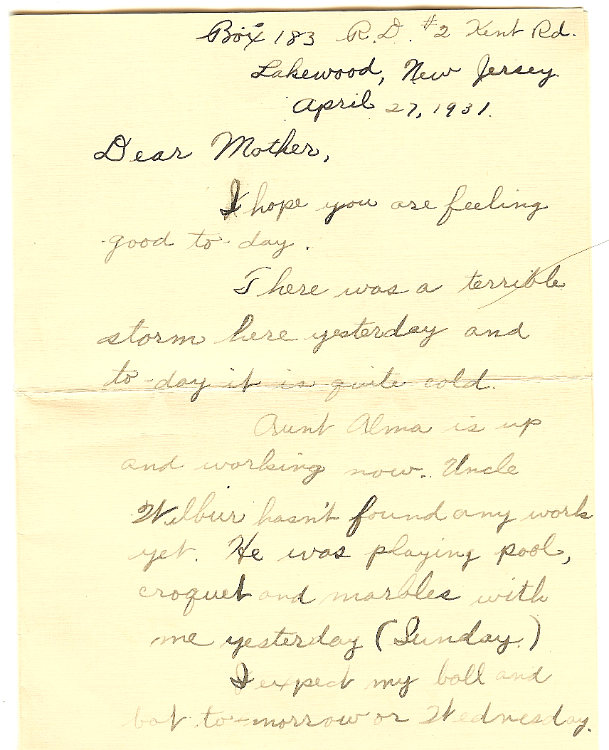 Box 183 R.D. #2 Kent Rd.
Lakewood, New Jersey.
April 27, 1931.
Dear Mother,
I hope you are feeling
good to-day.
There was a terrible
storm here yesterday and
to-day it is quite cold.
Aunt Alma is up
and working now. Uncle
Wilbur hasn't found any work
yet. He was playing pool,
croquet and marbles with
me yesterday (Sunday.)
I expect my ball and
bat to-morrow or Wednesday.